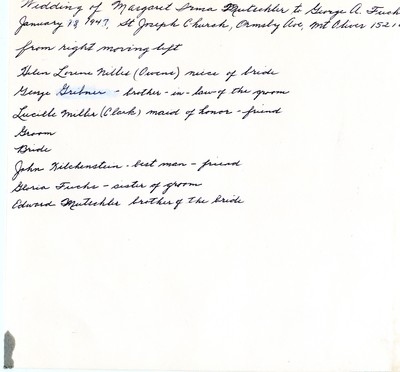 Wedding of Margaret Irma Mutschler to George A. Fuch
January 18, 1947, St Joseph Church, Ormsby Ave, Mt Oliver 1521
from right moving left
Helen Lorene Miller (Owens) niece of bride
George Gribner - brother-in-law of the groom
Lucille Miller (Clark) maid of honor - friend
Groom
Bride
John Kilchenstein - best man - friend
Gloria Fuchs - sister of groom
Edward Mutschler brother of the bride